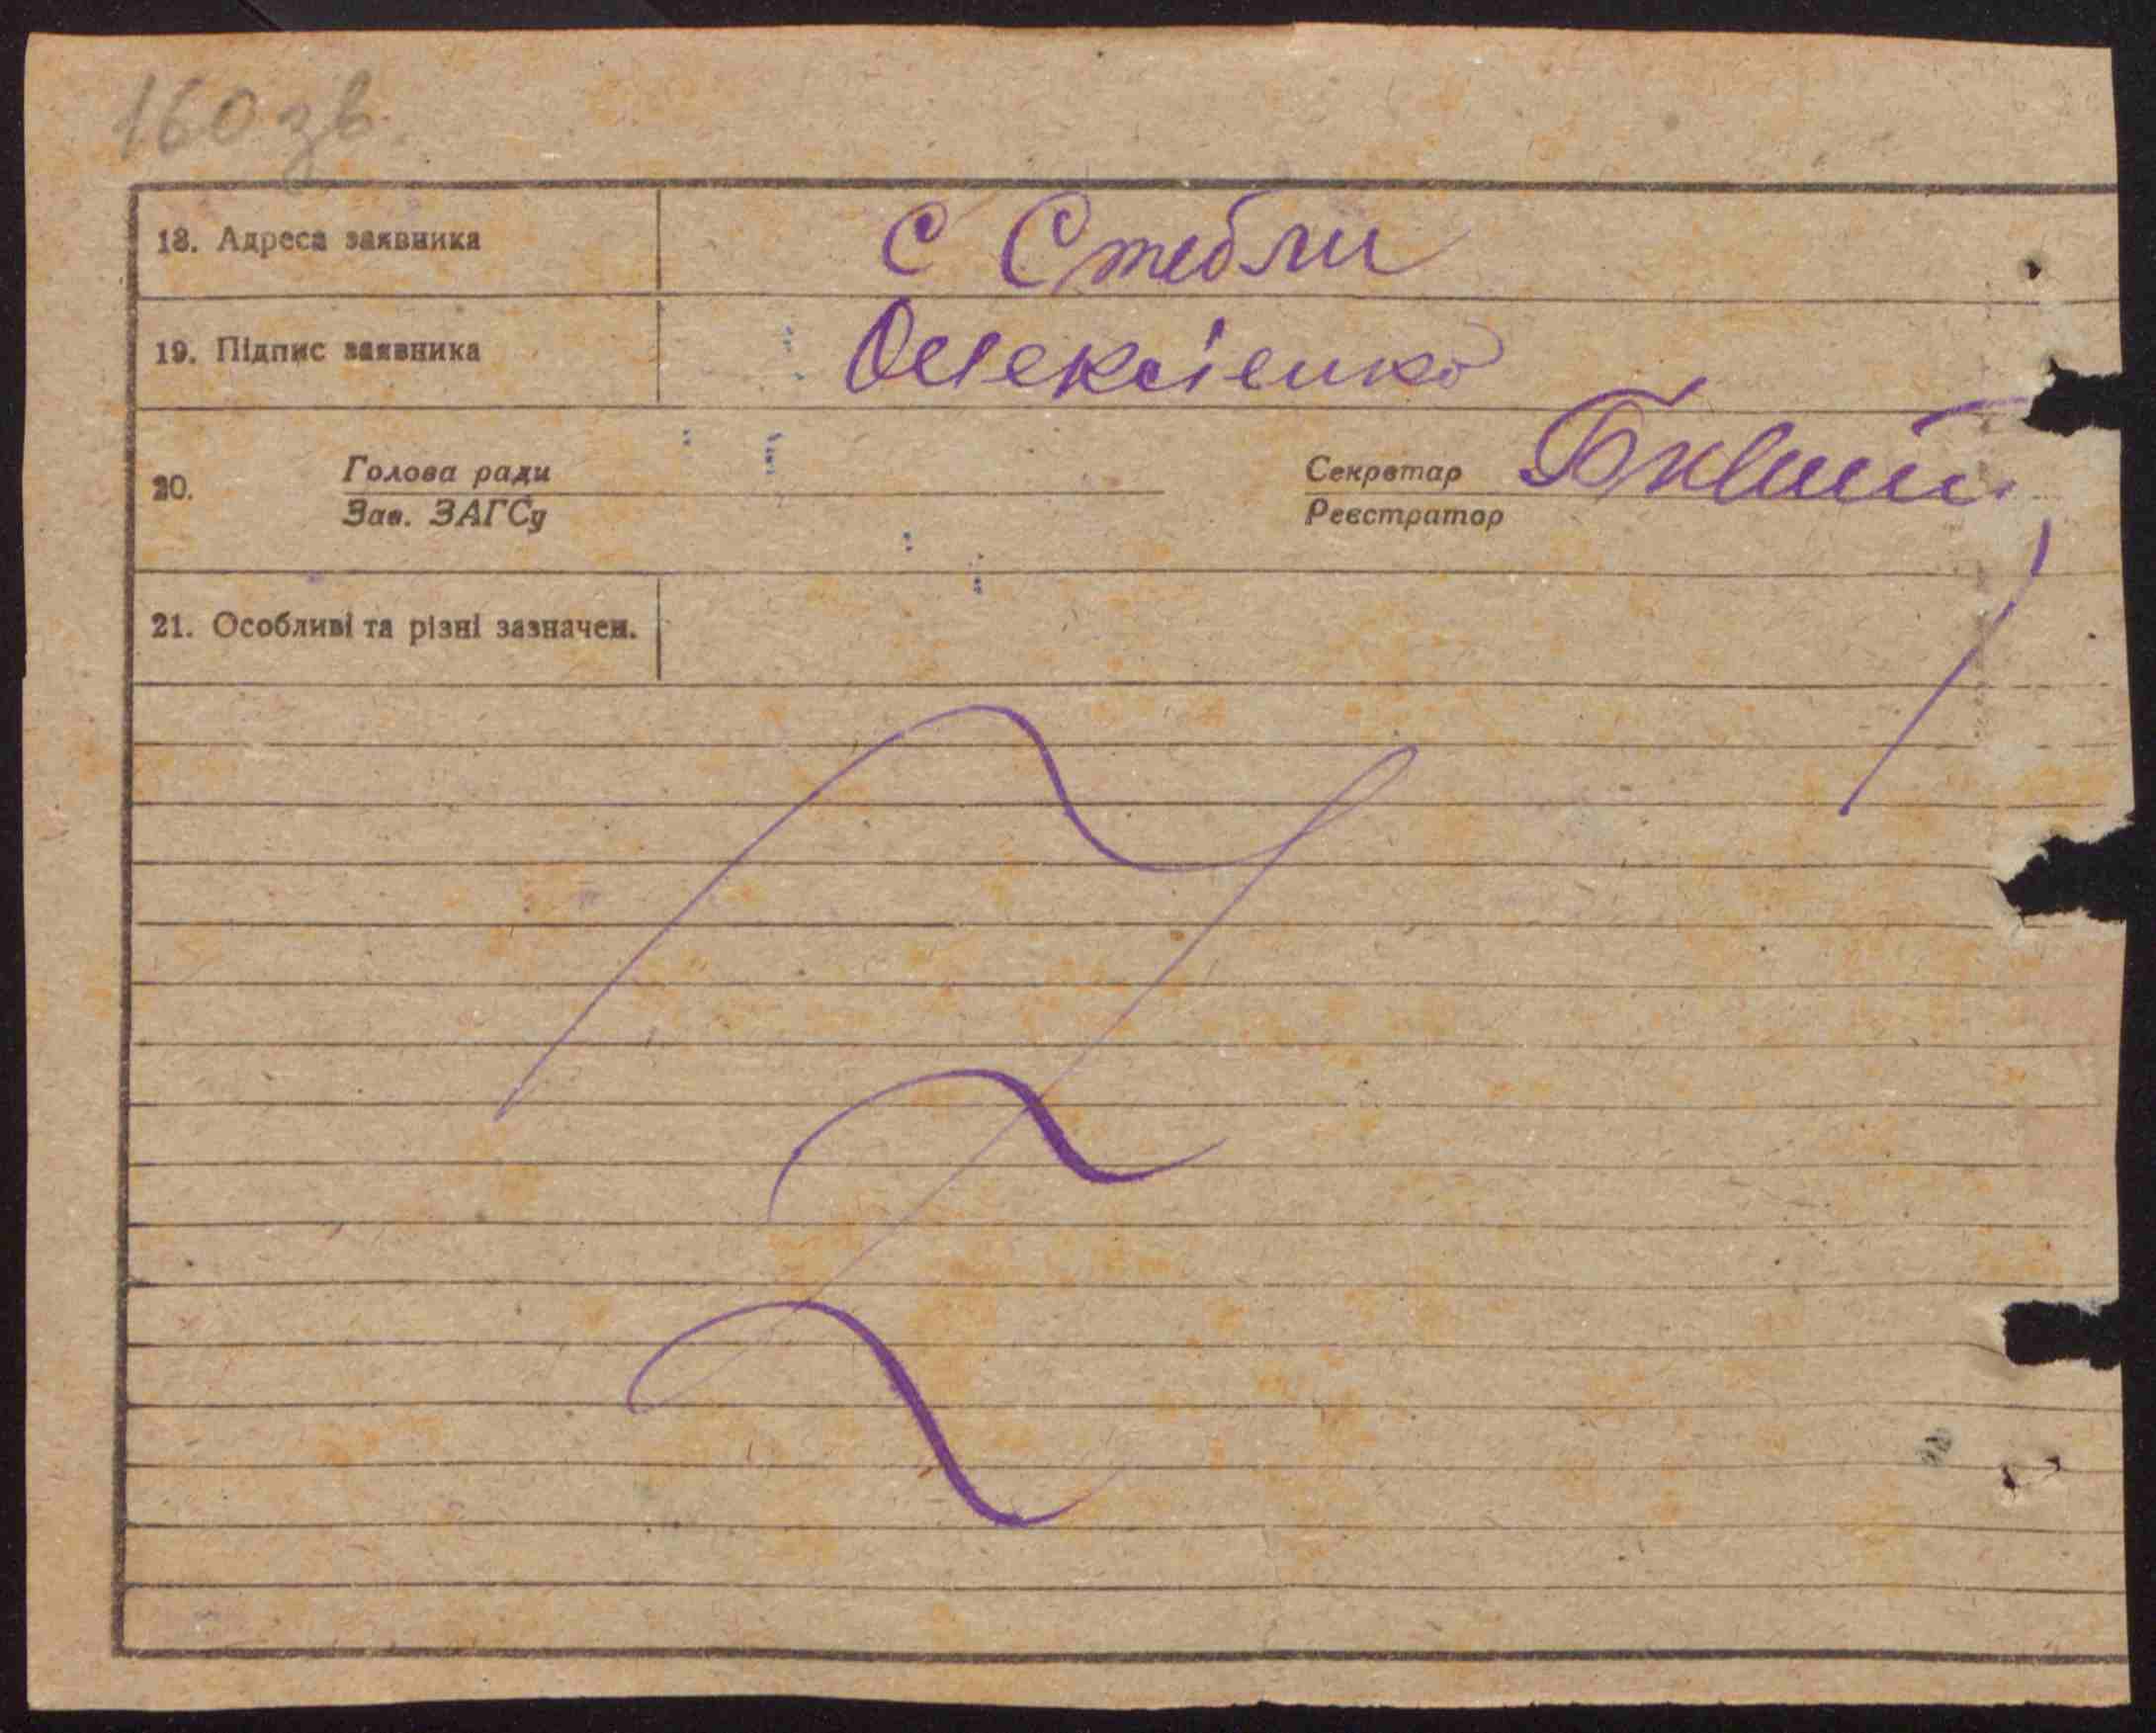 160 зв.
18. Адреса заявника С Стебли
19. Підпис заявника Олексієнко
20. Голова ради Секретар
Зав. ЗАГСу Реєстратор
21. Особливі та різні зазначен.